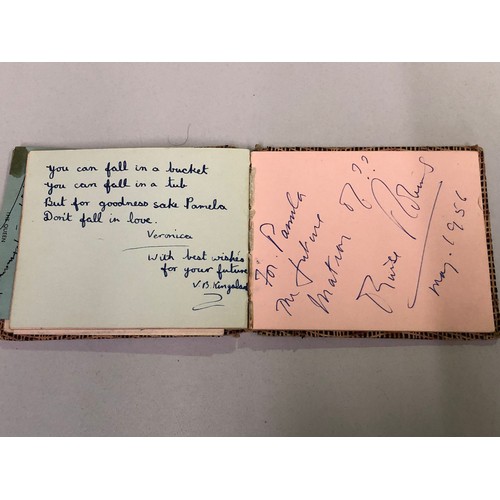 You can fall in a bucket
You can fall in a tub
But for goodness sake Pamela
Don't fall in love.
Veronica
With best wishes
for your future
V. B.
For Pamela
The future
Matron Of ??
May. 1956
THE QUEEN